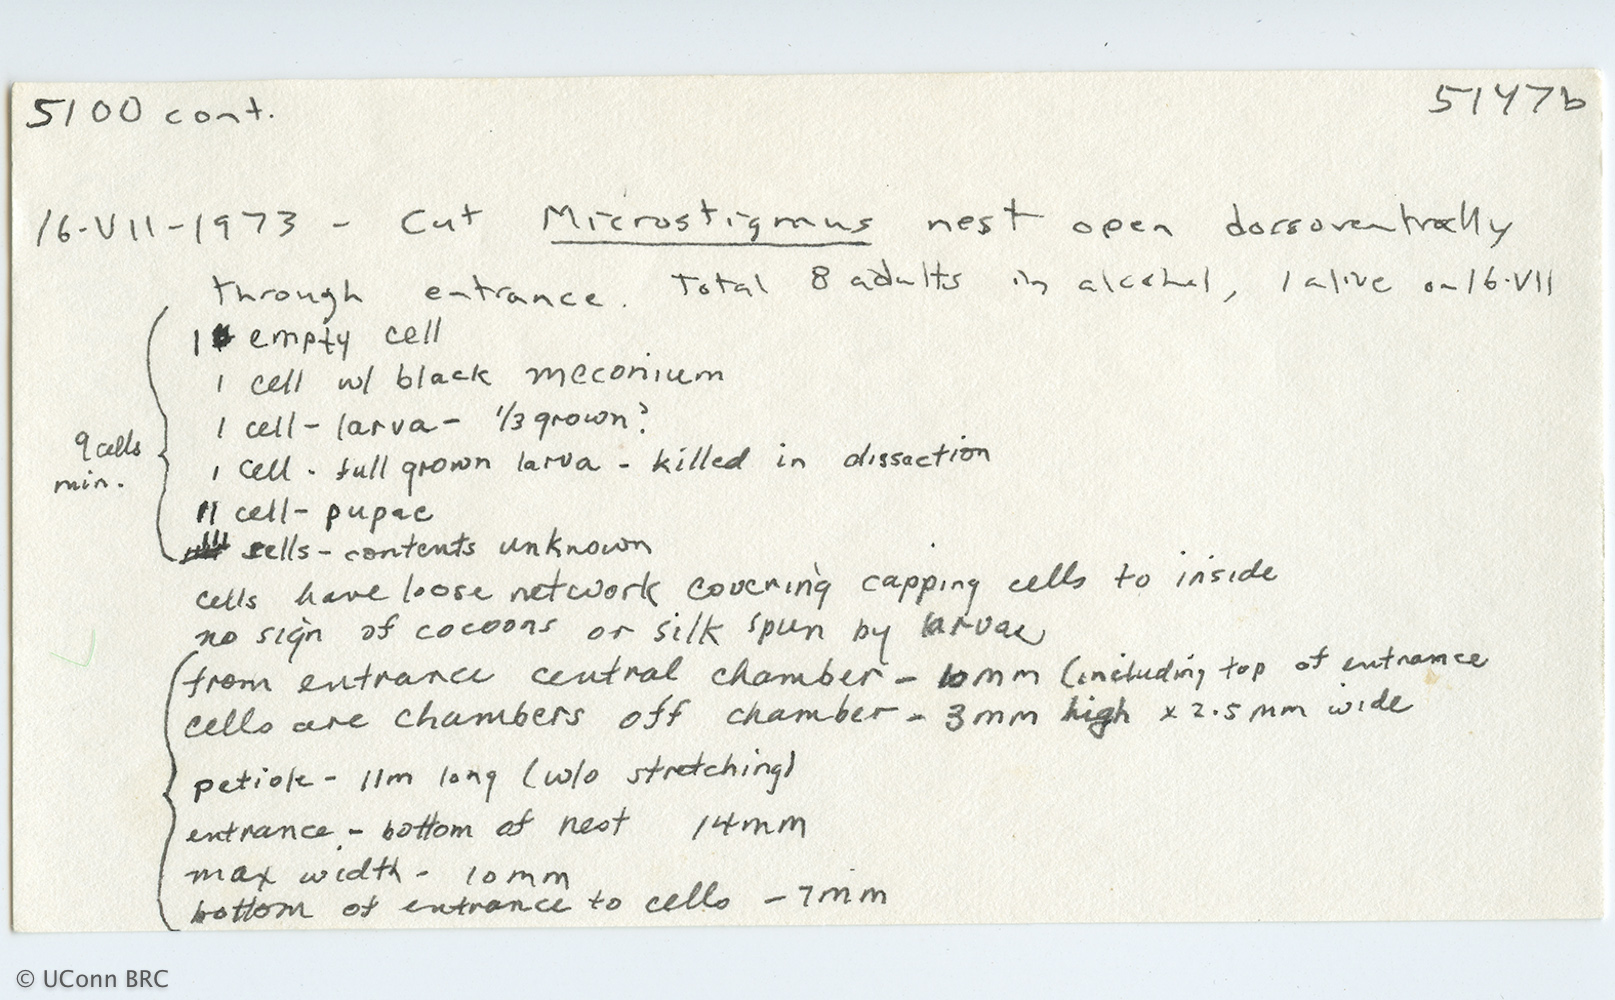 5100 cont.
5147b
16-VII-1973 - Cut Microstigmus nest open dorsoventrally
through entrance. Total 8 adults in alcohol, 1 alive on 16-VII
1 empty cell
1 cell w/ black meconium
1 cell - larva - 1/3 grown?
1 cell - full grown larva - killed in dissaction
9 cells
min.
11 cell - pupae
cells - contents unknown
cells have loose network covering capping cells to inside
no sign of cocoons or silk spun by larvae
from entrance central chamber - 10mm (including top of entrance
cells are chambers off chamber - 3mm high x 2.5 mm wide
petiole - 11m long (w/o stretching)
entrance - bottom of nest 14mm
max width - 10mm
bottom of entrance to cells - 7mm
© UConn BRC